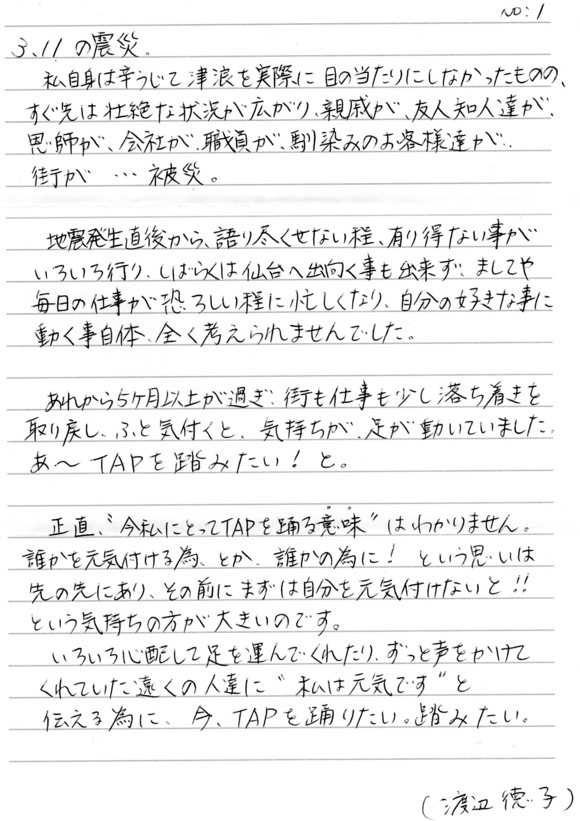 NO:1
3.11の震災。
私自身は辛うじて津浪を実際に目の当たりにしなかったものの、
すぐ先は壮絶な状況が広がり、親戚が、友人知人達が、
恩師が、会社が、職員が、馴染みのお客様達が、
街が…被災。
地震発生直後から、語り尽くせない程、有り得ない事が
いろいろ行り、しばらくは仙台へ出向く事も出来ず、ましてや
毎日の仕事が恐ろしい程に忙しくなり、自分の好きな事に
動く事自体、全く考えられませんでした。
あれから5ヶ月以上が過ぎ、街も仕事も少し落ち着きを
取り戻し、ふと気付くと、気持ちが、足が動いていました。
あ〜TAPを踏みたい!と。
正直、“今私にとってTAPを踊る意味”はわかりません。
誰かを元気付ける為、とか、誰かの為に!という思いは
先の先にあり、その前にまずは自分を元気付けないと!!
という気持ちの方が大きいのです。
いろいろ心配して足を運んでくれたり、ずっと声をかけて
くれていた遠くの人達に“私は元気です”と
伝える為に、今、TAPを踊りたい。踏みたい。
(渡辺徳子)